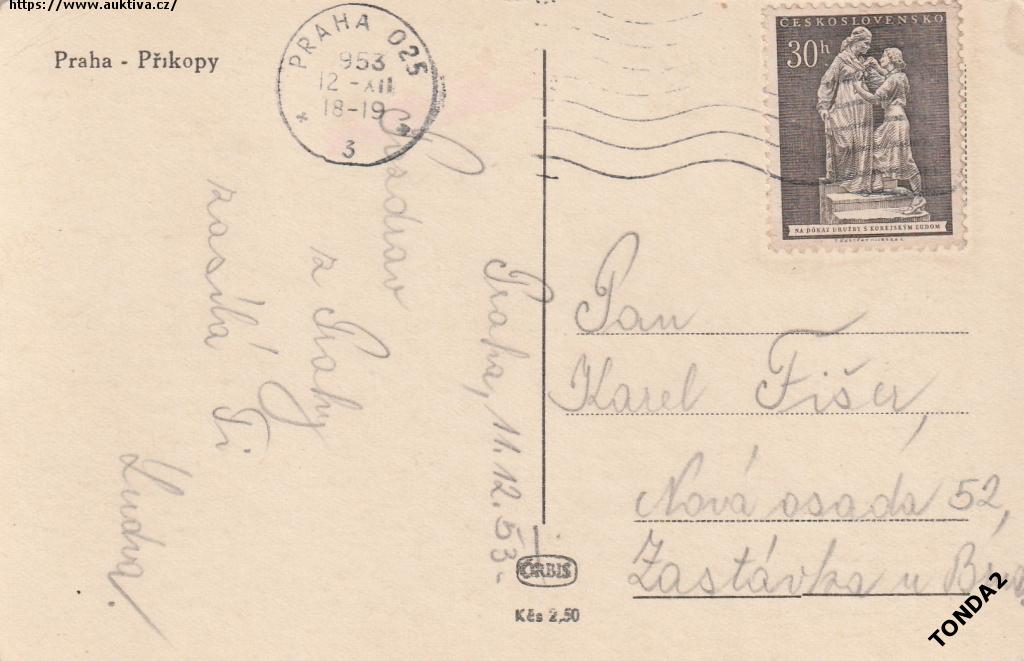 https://www.auktiva.cz/
Praha - Příkopy
PRAHA 025
953
12 -XII
18-19
* 3 *
ČESKOSLOVENSKO
30h
NA DÔKAZ DRUŽBY S KOREJSKÝM ĽUDOM
Praha, 11.12.53-
Pozdrav
z Prahy
zasílá Ti
Luďva.
Pan
Karel Fišer,
Nová osada 52,
Zastávka u Brna
ORBIS
Kčs 2,50
TONDA2